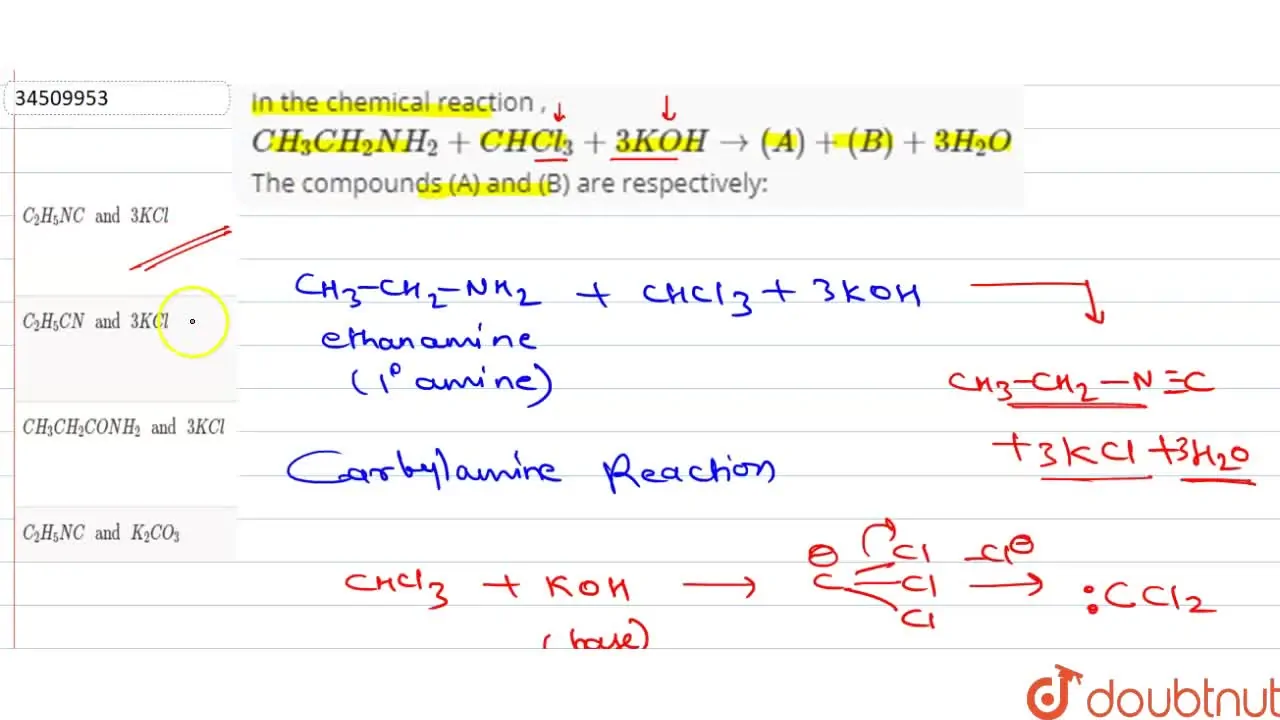 34509953
In the chemical reaction ,
CH₃CH₂NH₂ + CHCl₃ + 3KOH → (A) + (B) + 3H₂O
The compounds (A) and (B) are respectively:
C₂H₅NC and 3KCl
C₂H₅CN and 3KCl
CH₃CH₂CONH₂ and 3KCl
C₂H₅NC and K₂CO₃
CH₃-CH₂-NH₂ + CHCl₃ + 3KOH
ethanamine
(1° amine)
CH₃-CH₂-N≡C
+ 3KCl + 3H₂O
Carbylamine Reaction
CHCl₃ + KOH → ⊖C Cl Cl Cl -Cl⊖ → :CCl₂
(base)
doubtnut